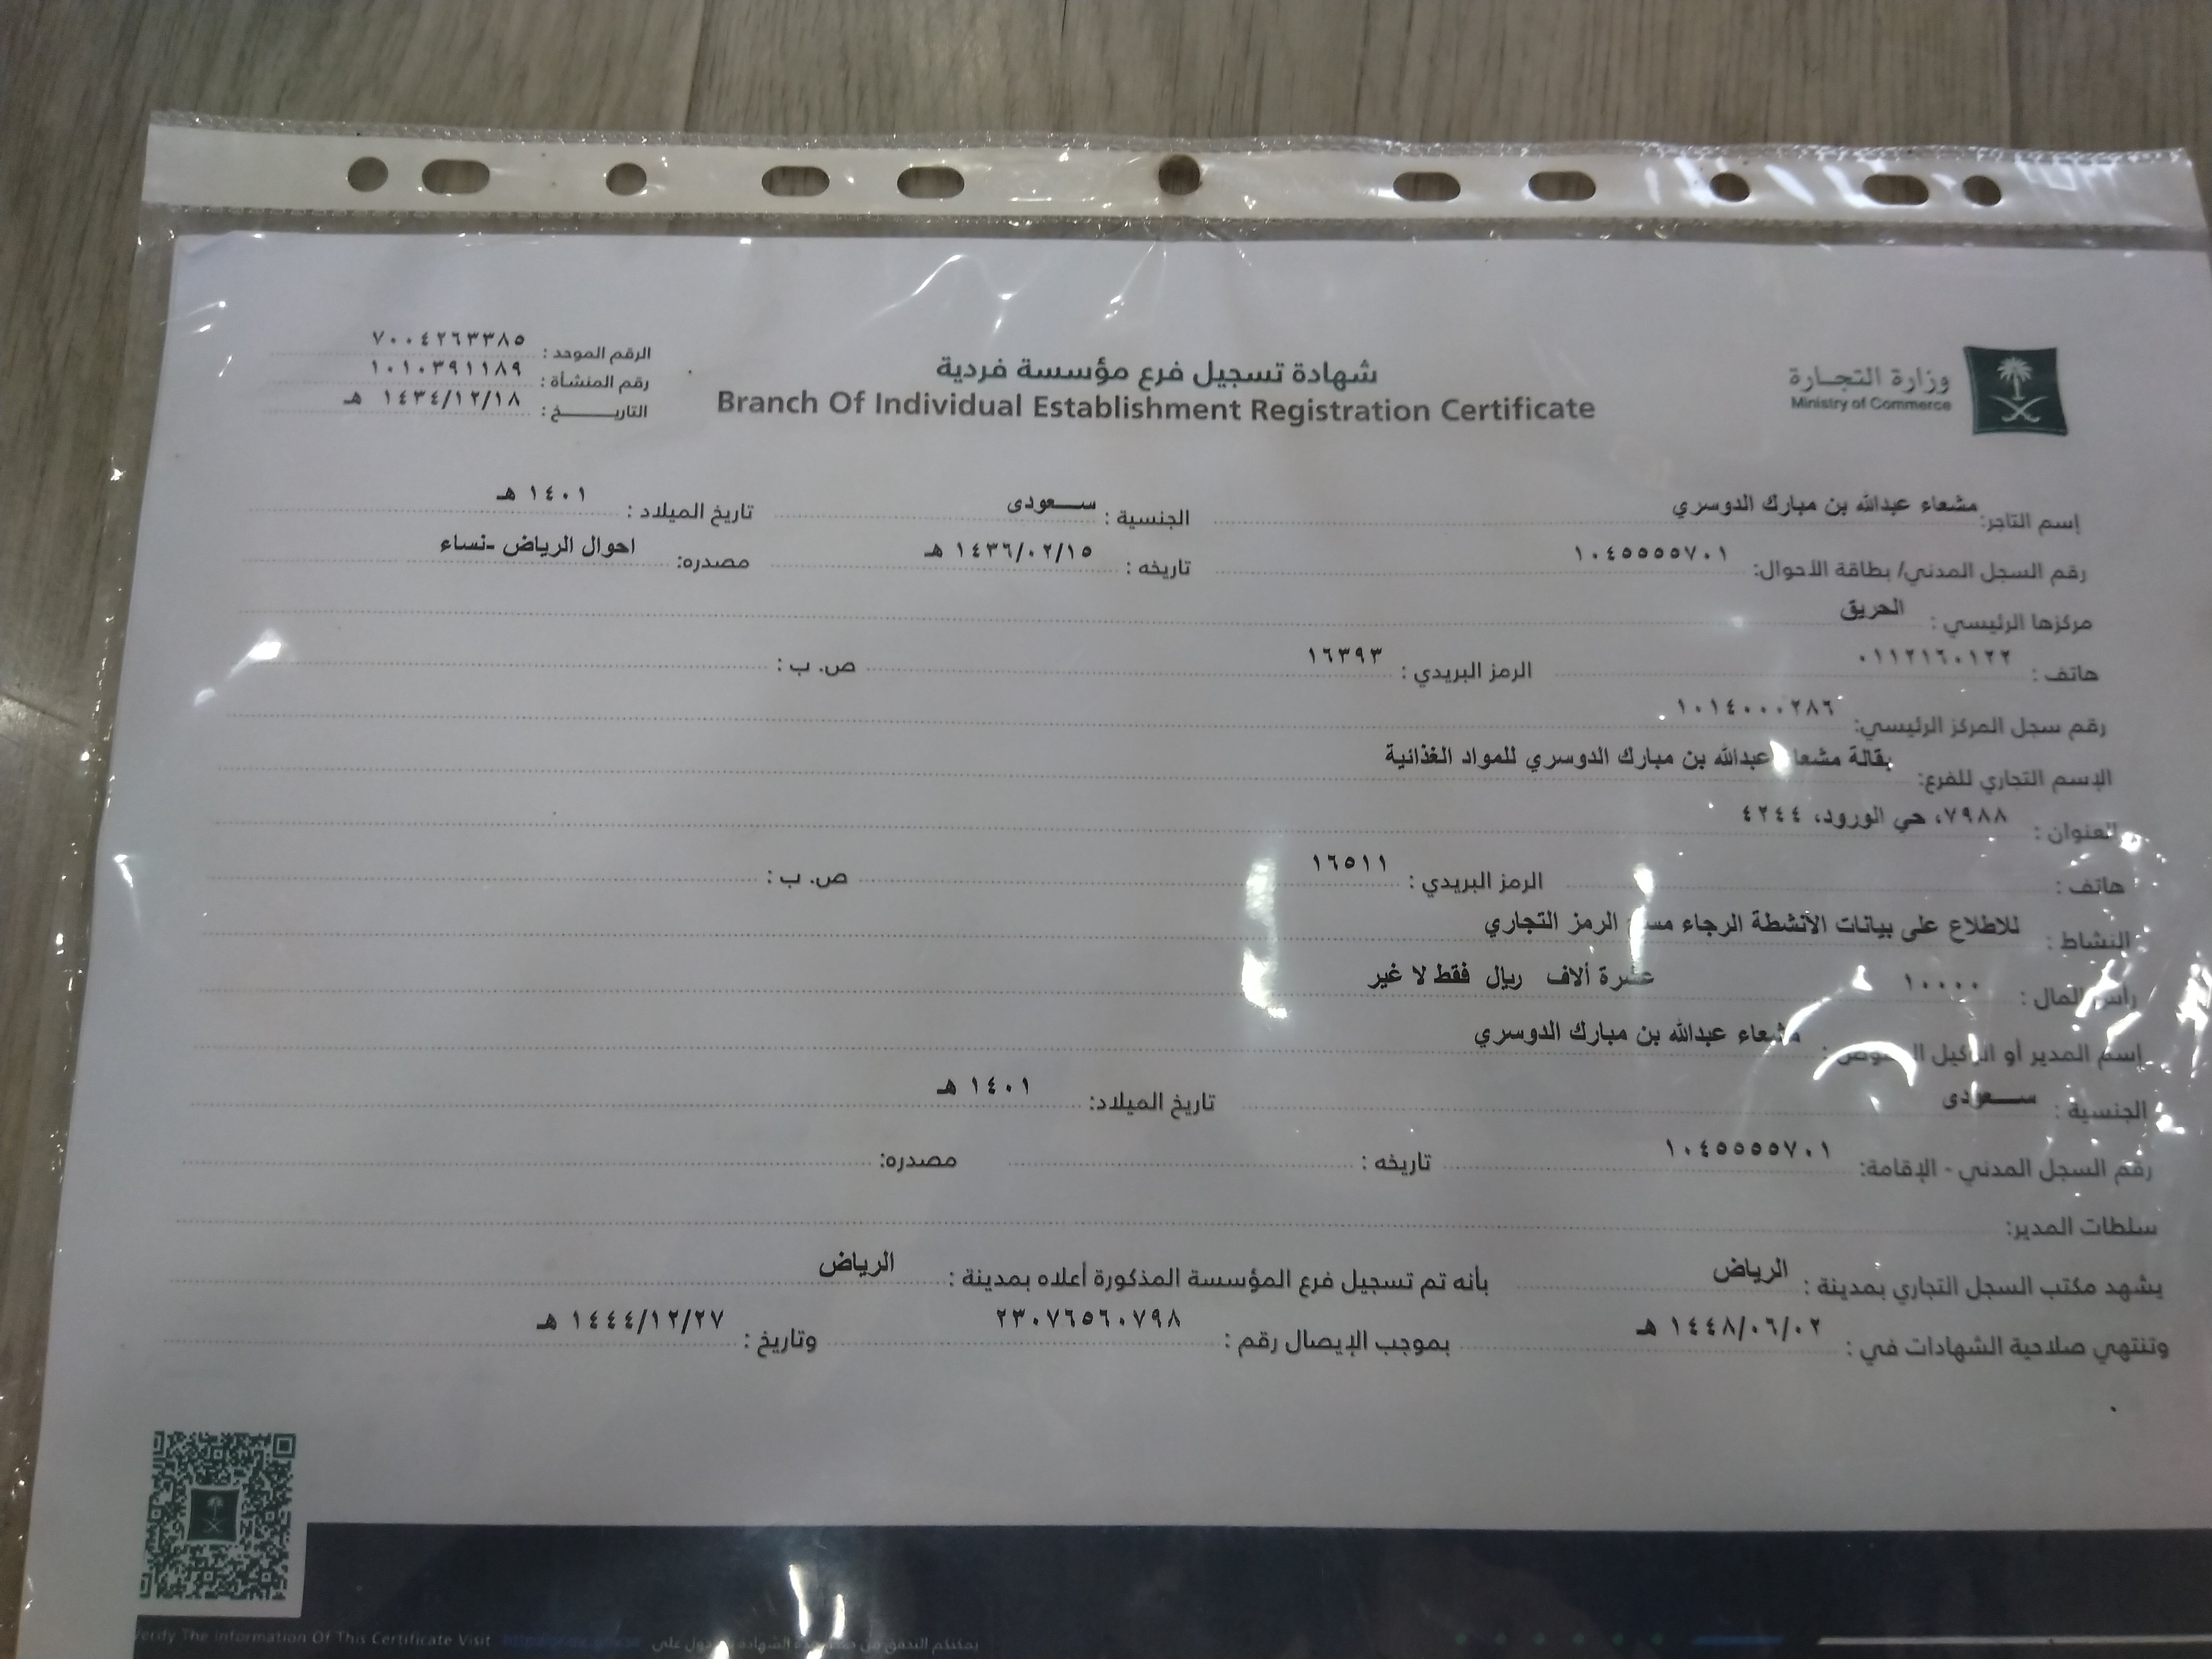 وزارة التجارة
Ministry of Commerce
شهادة تسجيل فرع مؤسسة فردية
Branch Of Individual Establishment Registration Certificate
الرقم الموحد : ٧٠٠٤٢٦٣٣٨٥
رقم المنشأة : ١٠١٠٣٩١١٨٩
التاريـــــخ : ١٤٣٤/١٢/١٨ هـ
إسم التاجر: مشعاء عبدالله بن مبارك الدوسري الجنسية : ســـعودى تاريخ الميلاد : ١٤٠١ هـ
رقم السجل المدني/ بطاقة الأحوال: ١٠٤٥٥٥٥٧٠١ تاريخه : ١٤٣٦/٠٢/١٥ هـ مصدره: احوال الرياض -نساء
مركزها الرئيسي : الحريق
هاتف : ٠١١٢١٦٠١٢٢ الرمز البريدي : ١٦٣٩٣ ص. ب :
رقم سجل المركز الرئيسي: ١٠١٤٠٠٠٢٨٦
الإسم التجاري للفرع: بقالة مشعاء عبدالله بن مبارك الدوسري للمواد الغذائية
العنوان : ٧٩٨٨، حي الورود، ٤٢٤٤
هاتف : الرمز البريدي : ١٦٥١١ ص. ب :
النشاط : للاطلاع على بيانات الأنشطة الرجاء مسح الرمز التجاري
رأس المال : ١٠٠٠٠ عشرة ألاف ريال فقط لا غير
إسم المدير أو الوكيل المفوض : مشعاء عبدالله بن مبارك الدوسري
الجنسية : ســـعودى تاريخ الميلاد: ١٤٠١ هـ
رقم السجل المدني - الإقامة: ١٠٤٥٥٥٥٧٠١ تاريخه : مصدره:
سلطات المدير:
يشهد مكتب السجل التجاري بمدينة : الرياض بأنه تم تسجيل فرع المؤسسة المذكورة أعلاه بمدينة : الرياض
وتنتهي صلاحية الشهادات في : ١٤٤٨/٠٦/٠٢ هـ بموجب الإيصال رقم : ٢٣٠٧٦٥٦٠٧٩٨ وتاريخ : ١٤٤٤/١٢/٢٧ هـ
Verify The Information Of This Certificate Visit